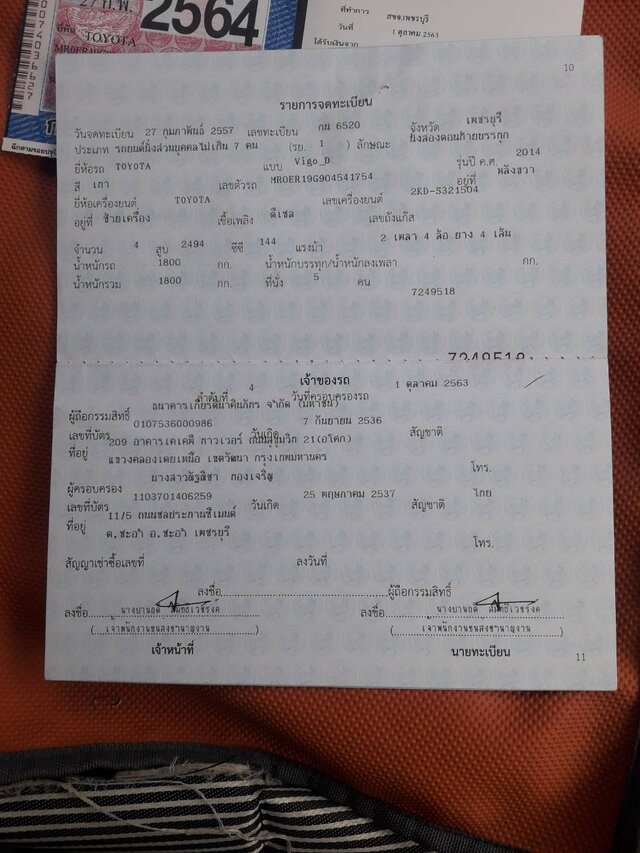 27 ก.พ. 2564
ยี่ห้อ TOYOTA
ที่ทำการ สขจ.เพชรบุรี
วันที่ 1 ตุลาคม 2563
ได้รับเงินจาก
10
รายการจดทะเบียน
วันจดทะเบียน 27 กุมภาพันธ์ 2557 เลขทะเบียน กน 6520 จังหวัด เพชรบุรี
ประเภท รถยนต์นั่งส่วนบุคคลไม่เกิน 7 คน (รย. 1 ) ลักษณะ นั่งสองตอนท้ายบรรทุก
ยี่ห้อรถ TOYOTA แบบ Vigo_D รุ่นปี ค.ศ. 2014
สี เทา เลขตัวรถ MR0ER19G904541754 อยู่ที่ หลังขวา
ยี่ห้อเครื่องยนต์ TOYOTA เลขเครื่องยนต์ 2KD-S321504
อยู่ที่ ซ้ายเครื่อง เชื้อเพลิง ดีเซล เลขถังแก๊ส
จำนวน 4 สูบ 2494 ซีซี 144 แรงม้า 2 เพลา 4 ล้อ ยาง 4 เส้น
น้ำหนักรถ 1800 กก. น้ำหนักบรรทุก/น้ำหนักลงเพลา กก.
น้ำหนักรวม 1800 กก. ที่นั่ง 5 คน
7249518
7249518
เจ้าของรถ
ลำดับที่ 4 วันที่ครอบครองรถ 1 ตุลาคม 2563
ผู้ถือกรรมสิทธิ์ ธนาคารเกียรตินาคินภัทร จำกัด (มหาชน)
เลขที่บัตร 0107536000986 วันเกิด 7 กันยายน 2536 สัญชาติ
ที่อยู่ 209 อาคารเคเคพี ทาวเวอร์ ถนนสุขุมวิท 21(อโศก)
แขวงคลองเตยเหนือ เขตวัฒนา กรุงเทพมหานคร โทร.
ผู้ครอบครอง นางสาวณัฐณิชา ทองเจริญ
เลขที่บัตร 1103701406259 วันเกิด 25 พฤษภาคม 2537 สัญชาติ ไทย
ที่อยู่ 11/5 ถนนชลประทานซีเมนต์
ต.ชะอำ อ.ชะอำ เพชรบุรี โทร.
สัญญาเช่าซื้อเลขที่ ลงวันที่
ลงชื่อ ผู้ถือกรรมสิทธิ์
ลงชื่อ ลงชื่อ
(เจ้าพนักงานขนส่งชำนาญงาน) (เจ้าพนักงานขนส่งชำนาญงาน)
เจ้าหน้าที่ นายทะเบียน
11